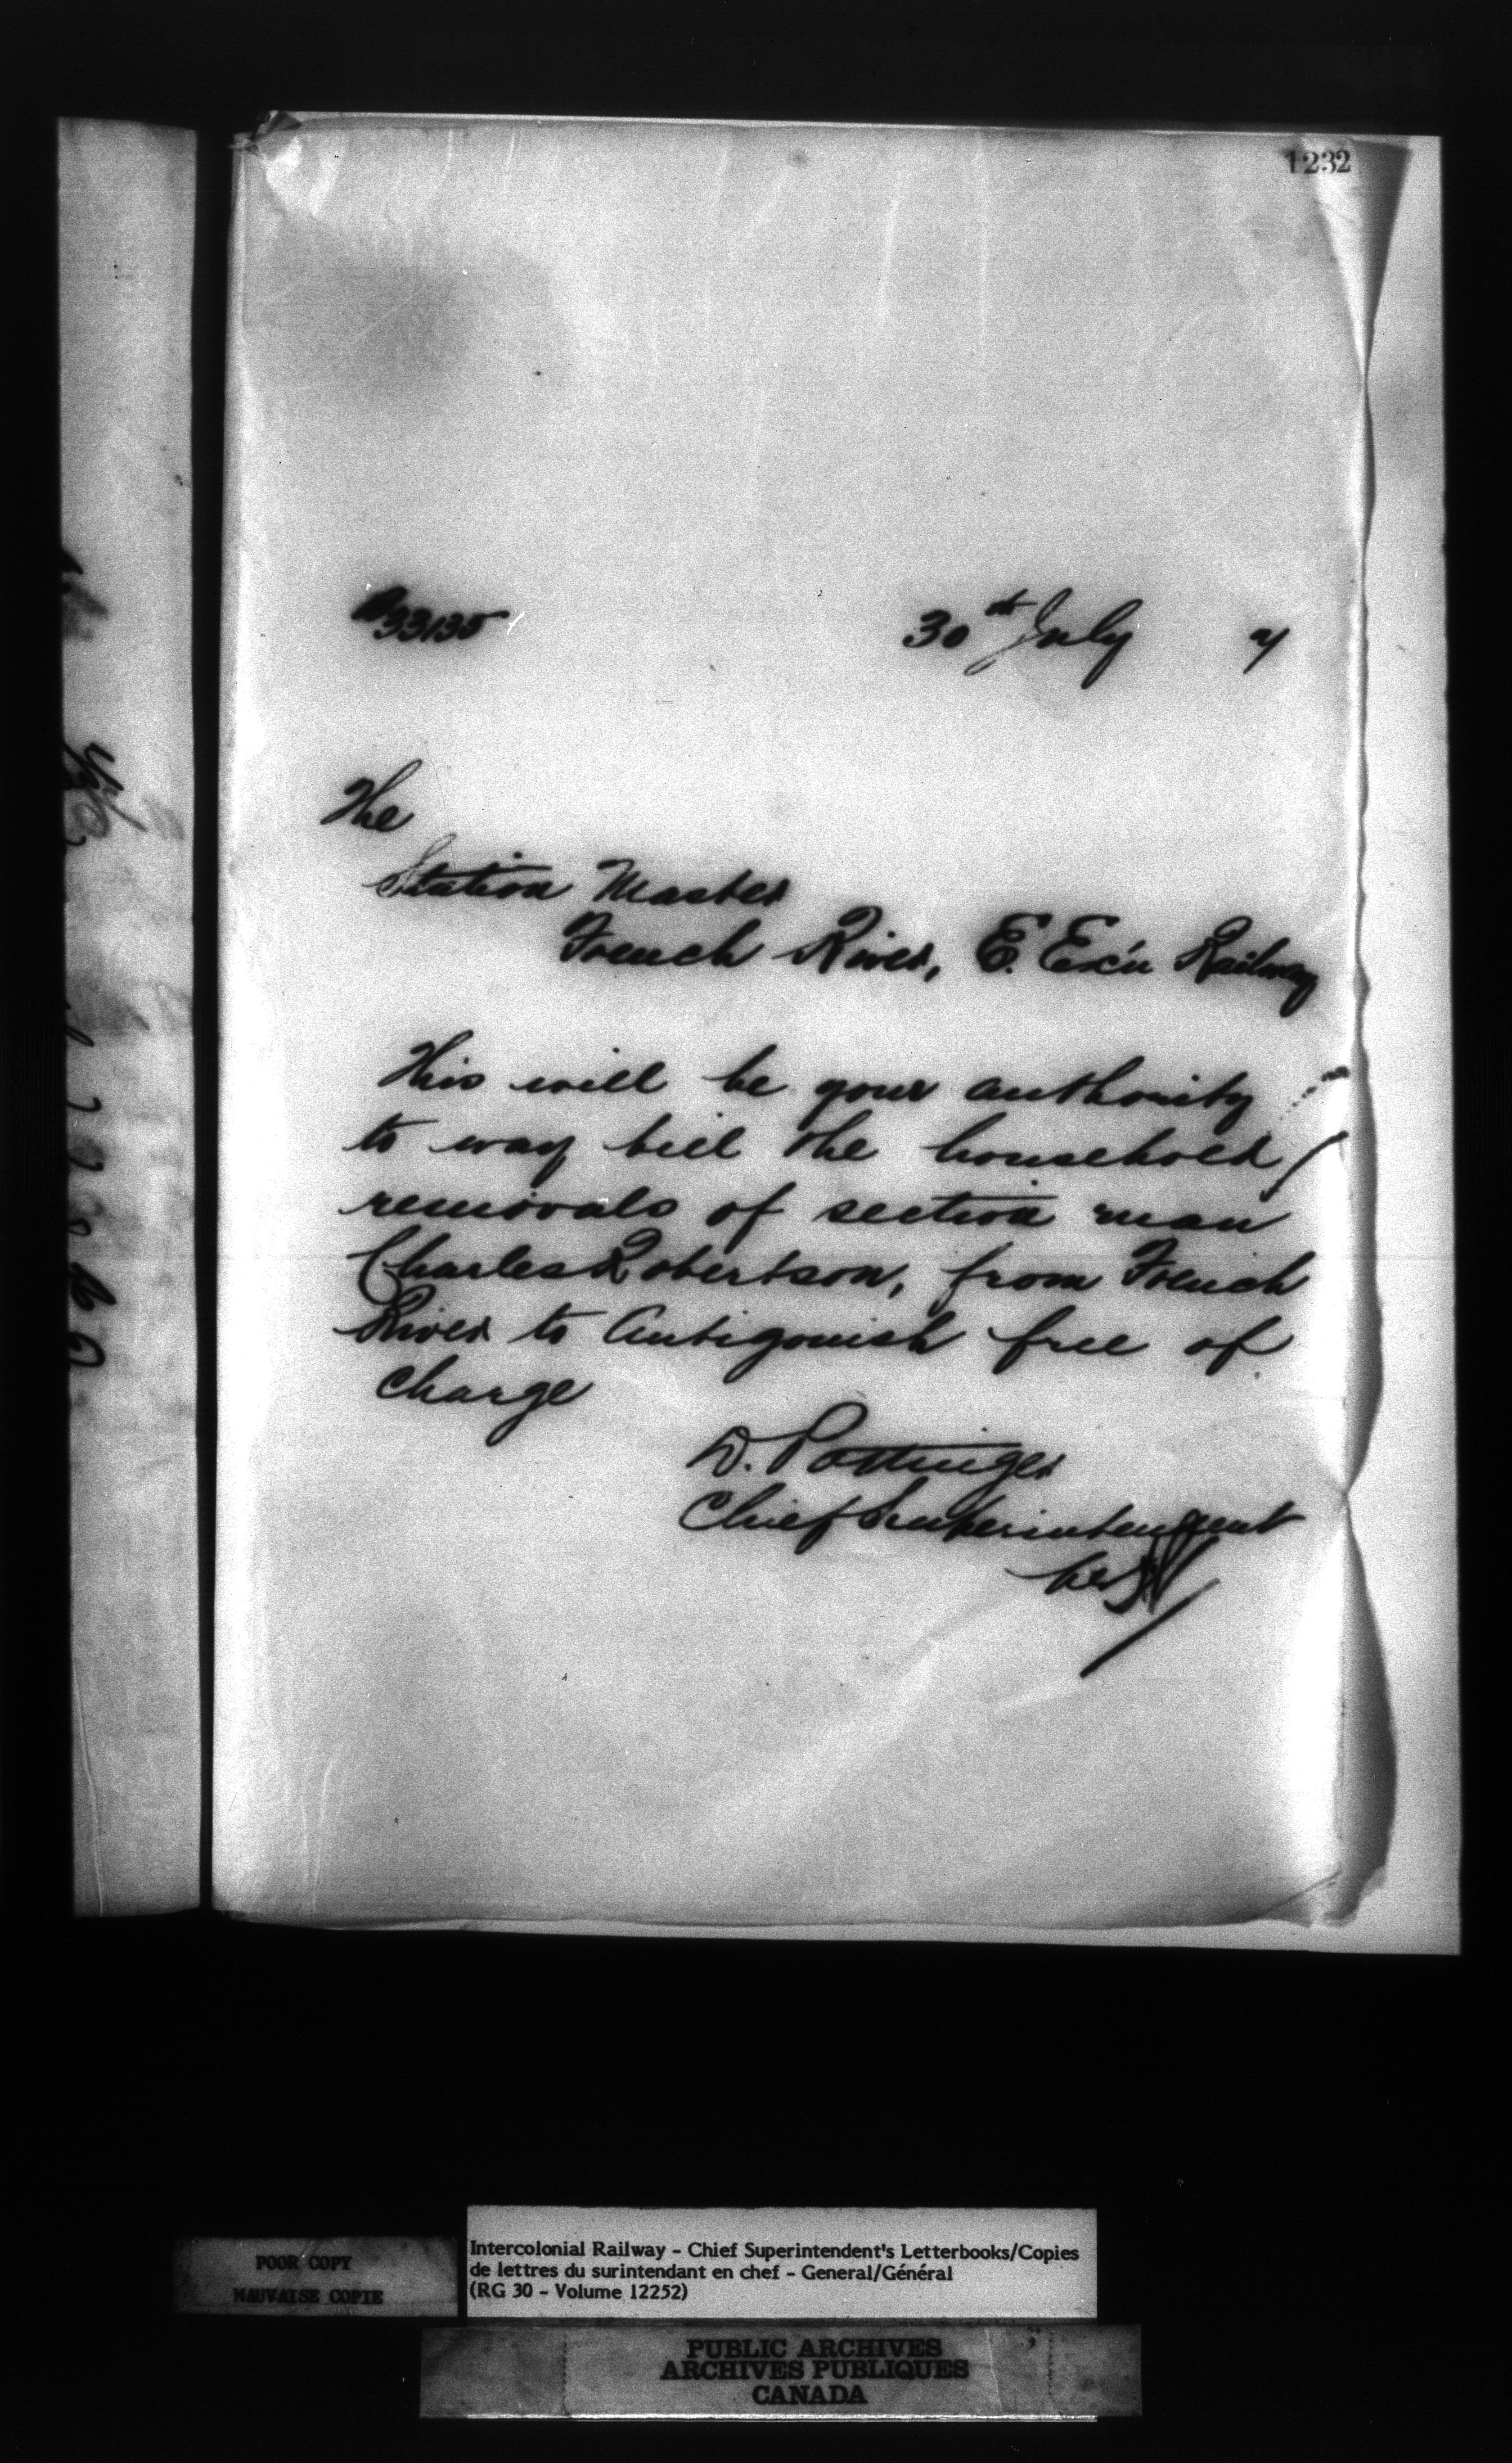 1232
33135
30th July 7
The
Station Master
French River, E. Ex'n Railway
This will be your authority
to way bill the household
removals of section man
Charles Robertson, from French
River to Antigonish free of
charge
D. Pottinger
Chief Superintendent
POOR COPY
MAUVAISE COPIE
Intercolonial Railway - Chief Superintendent's Letterbooks/Copies
de lettres du surintendant en chef - General/Général
(RG 30 - Volume 12252)
PUBLIC ARCHIVES
ARCHIVES PUBLIQUES
CANADA